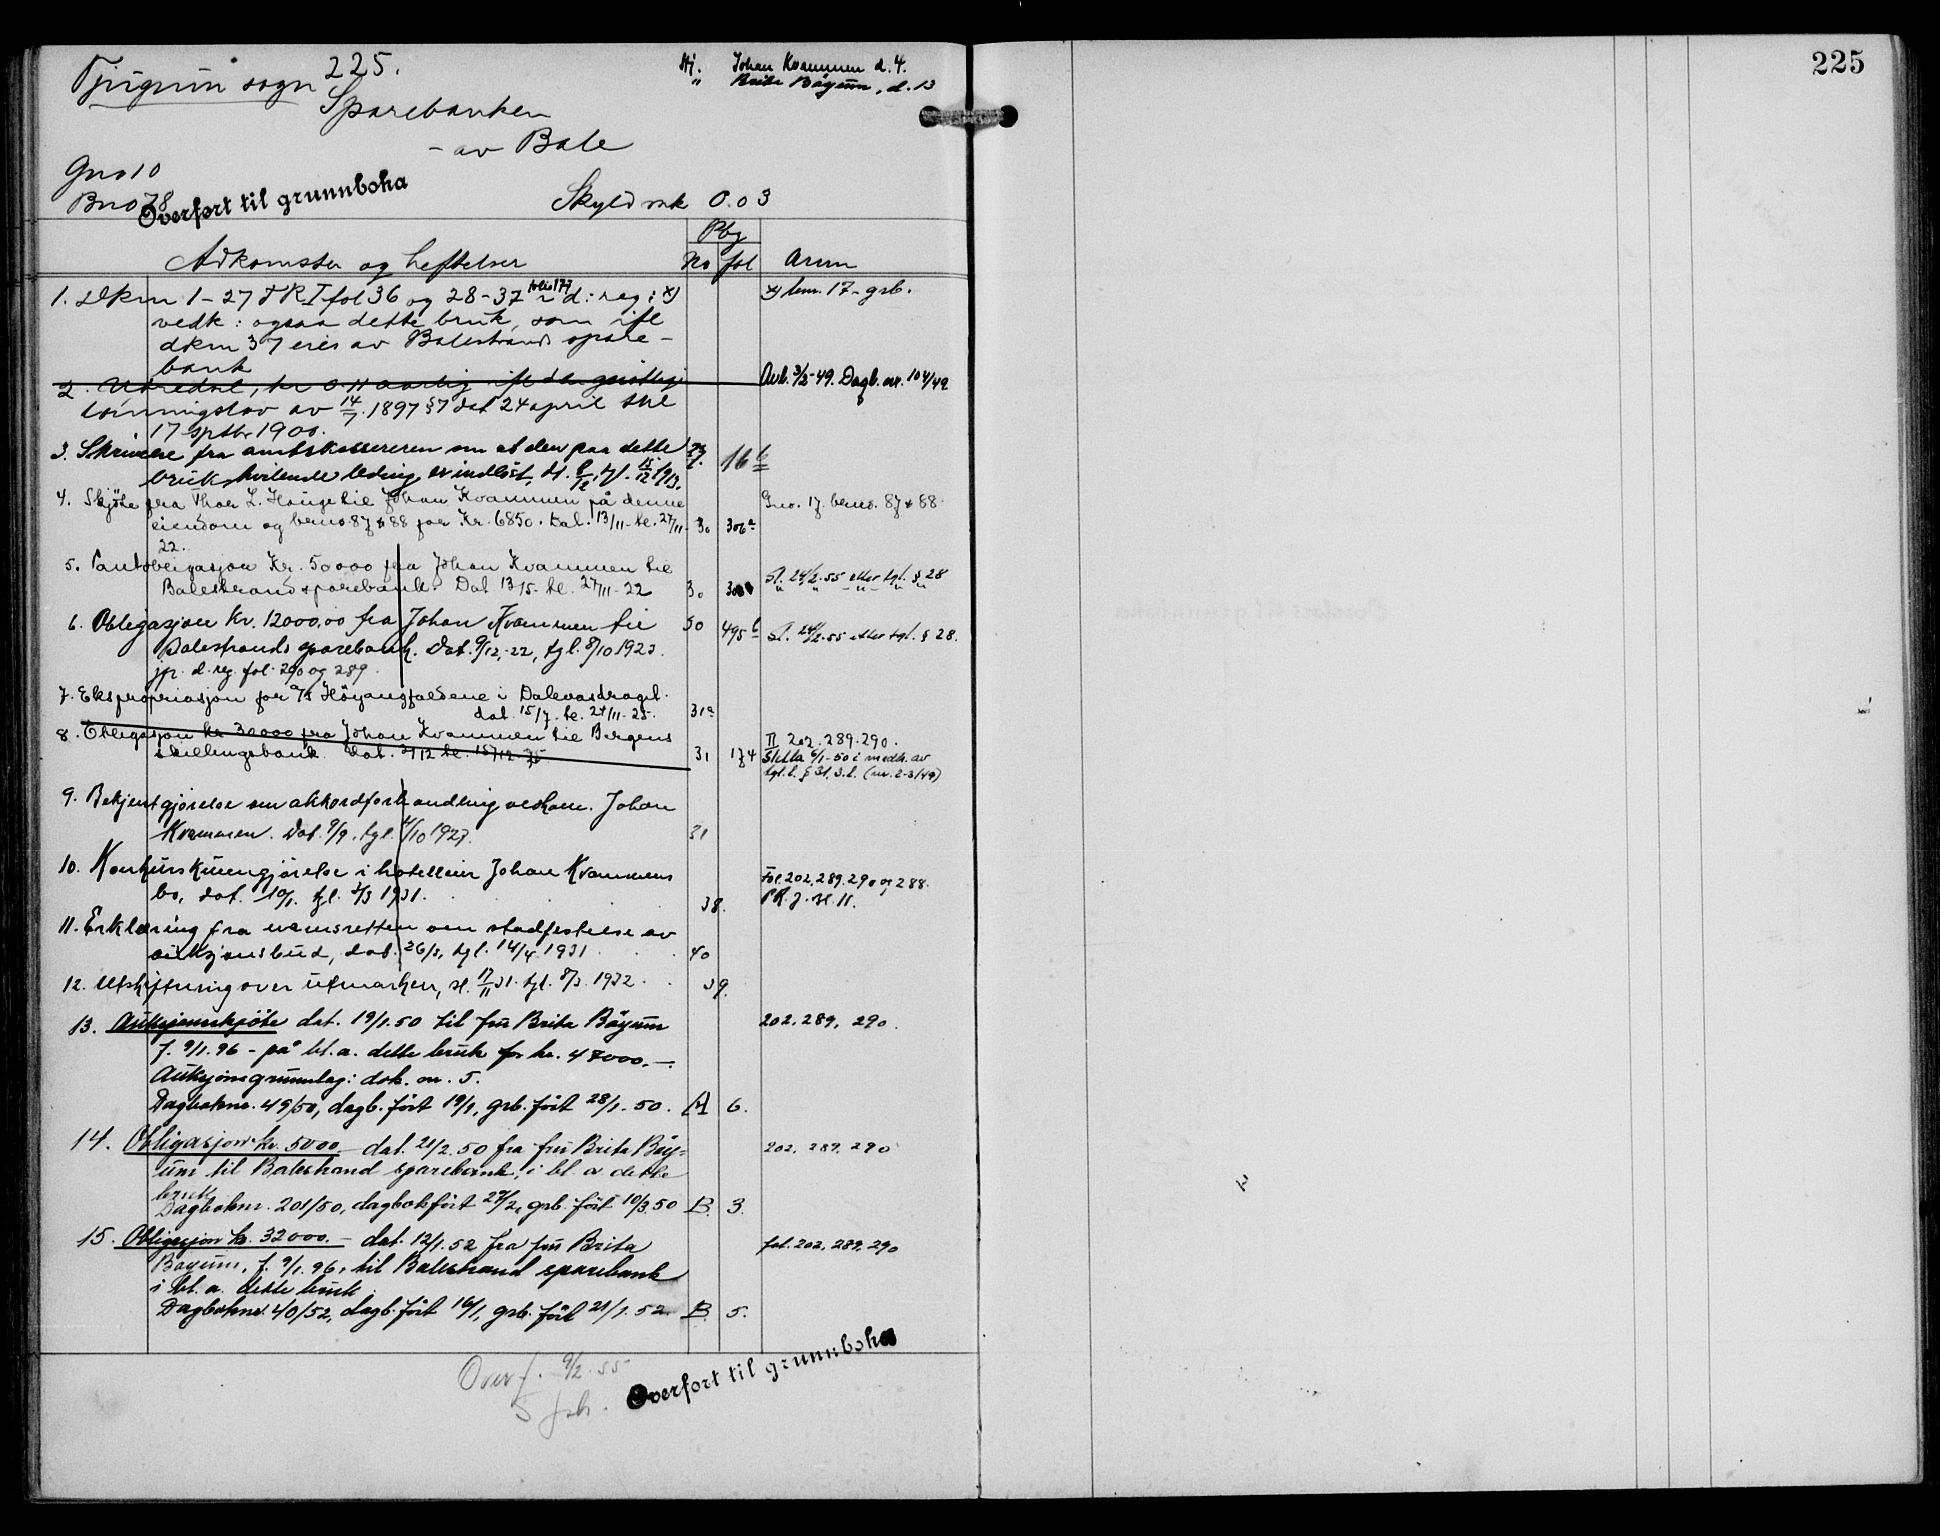 225.
Tjugum sogn
Hj. Johan Kvammen d. 4.
" Brita Böyum, d. 13
225
Sparebanken
- av Bale
Gno 10
Bno 78
Overført til grunnboka
Skyld mk 0.03
Pbg
Adkomster og heftelser No fol Anm
1. Dkm 1-27 PR I fol 36 og 28-37 folio 177 d: reg: x) x) bnr. 17 - grb.
vedk: ogsaa dette bruk, som ifl
dkm 37 eies av Balestrand spare-
bank
2. kr 0.11 aarlig ifl den geistlige Avl. 3/2-49. Dagb. nr. 104/49
lönningslov av 14/7. 1897 §7 dat 24 april thl
17 septbr 1900.
3. Skrivelse fra amtskassereren om at den paa dette 16 b
bruk hvilende leding er indløst, tgl. 15/12 1913.
4. Skjöte fra Thor L. Hauge til Johan Kvammen på denne Gno. 17. bnno. 87 & 88.
eiendom og bnno. 87 & 88 for Kr. 6850. Dat. 13/11 - tl. 27/11- 30 306a
22.
5. Pantobligasjon Kr. 50000 fra Johan Kvammen til
Balestrand sparebank. Dat 13/5- tl. 27/11-22 30 Sl. 24/2.55 etter tgl. § 28
6. Obligasjon Kr. 12000,00 fra Johan Kvammen til 30 495 b Sl. 24/2.55 etter tgl. § 28.
Balestrands sparebank. Dat. 9/12.-22, tgl. 8/10 1923.
jfr. d. reg. fol. 290 og 289.
7. Ekspropriasjon for A/S Höyangfaldene i Dalevasdraget.
dat. 15/7. tl. 24/11-25. 31a
8. Obligasjon kr. 30000 fra Johan Kvammen til Bergens II 202. 289. 290.
skillingsbank. Dat. 3/12 tl. 15/12-25 31 174 Sletta 6/1-50 i medh. av
tgl.l. § 31, 3.l. (nr. 2-3/49)
9. Bekjentgjörelse om akkordforhandling vedkom. Johan
Kvammen. Dat. 9/9. tgl. 4/10 1927. 31
10. Konkurskunngjörelse i hotelleier Johan Kvammens Fol. 202, 289, 290 og 288.
bo, dat. 10/1. tgl. 3/3 1931. 38.
11. Erklæring fra namsretten om stadfestelse av
auksjonsbud, dat. 26/3, tgl. 14/4 1931 40
12. Utskiftning over utmarken, sl. 17/11 31. tgl. 8/3. 1932. 39.
13. Auksjonsskjöte dat. 19/1.50 til fru Brita Böyum 202. 289, 290.
f. 9/1.96 - på bl.a. dette bruk for kr. 47000.-
Auksjonsgrunnlag: dok. nr. 5.
Dagboknr. 49/50, dagb. fört 19/1, grb. fört 28/1-50. A 6.
14. Obligasjon kr. 5000.- dat. 21/2.50 fra fru Brita Böy- 202, 289, 290
um til Balestrand sparebank, i bl. a dette
bruk
Dagboknr. 201/50, dagbokfört 27/2, grb. fört 10/3.50 B. 3.
15. Obligasjon kr. 32000.- dat. 12/1.52 fra fru Brita fol. 202, 289, 290
Böyum, f. 9/1.96, til Balestrand sparebank
i bl. a. dette bruk.
Dagboknr. 40/52, dagb. fört 16/1, grb. fört 21/1.52. B. 5.
Overf. 9/2.55
Overført til grunnboka